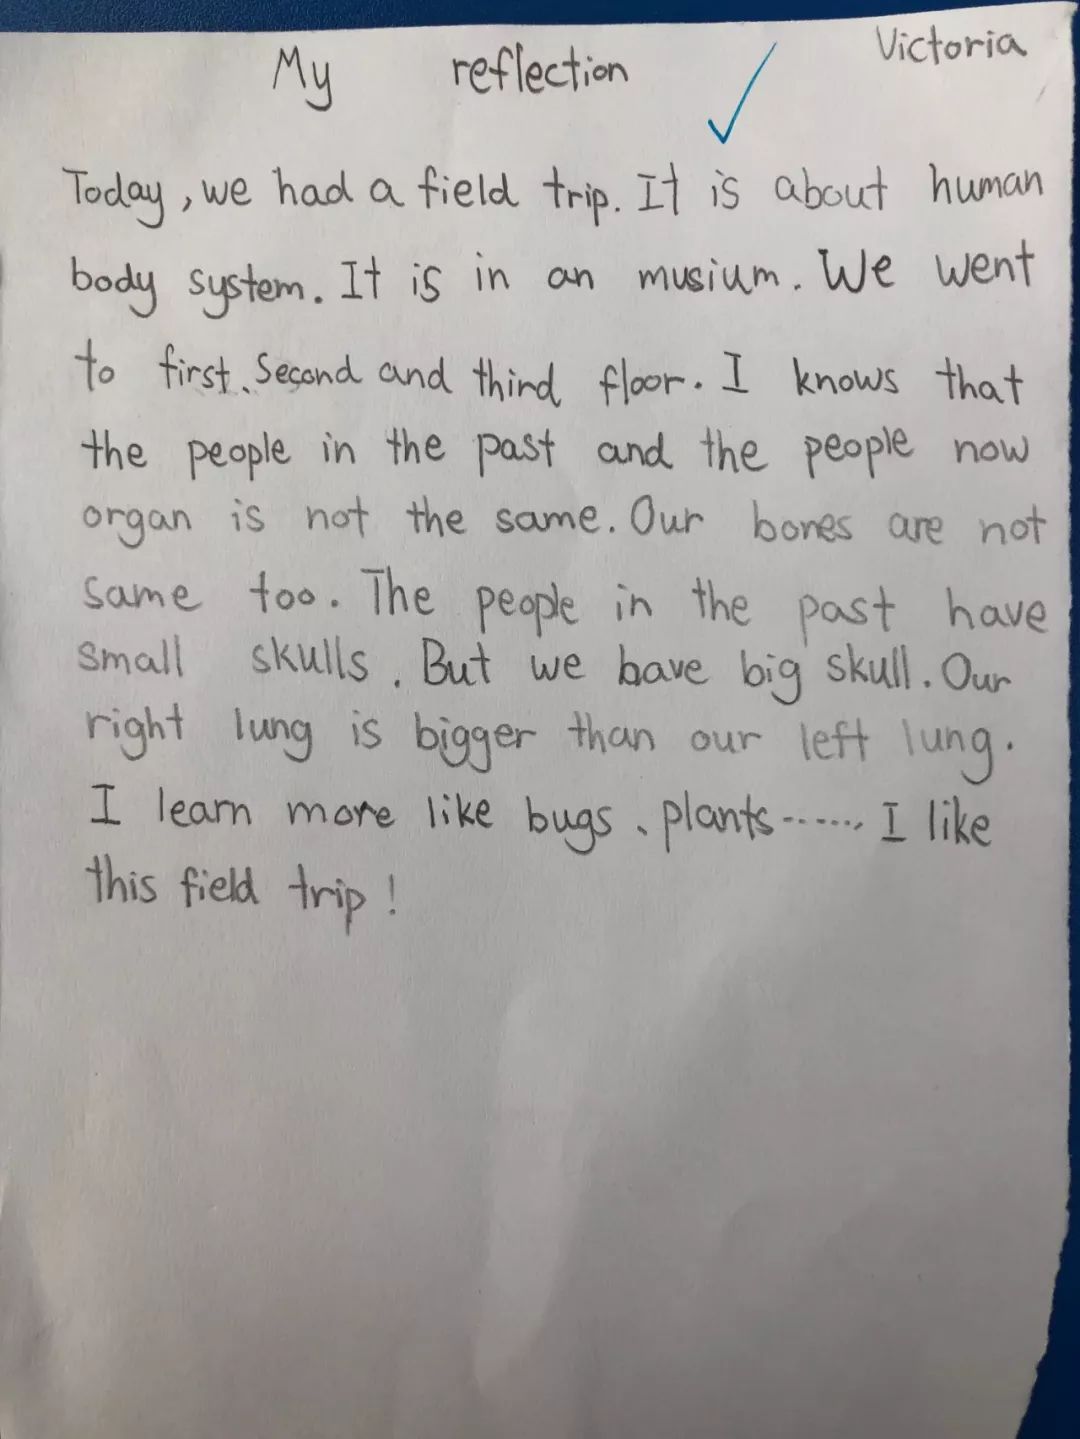 My reflection Victoria
Today, we had a field trip. It is about human
body system. It is in an musium. We went
to first、Second and third floor. I knows that
the people in the past and the people now
organ is not the same. Our bones are not
same too. The people in the past have
small skulls. But we bave big skull. Our
right lung is bigger than our left lung.
I learn more like bugs、plants......, I like
this field trip!